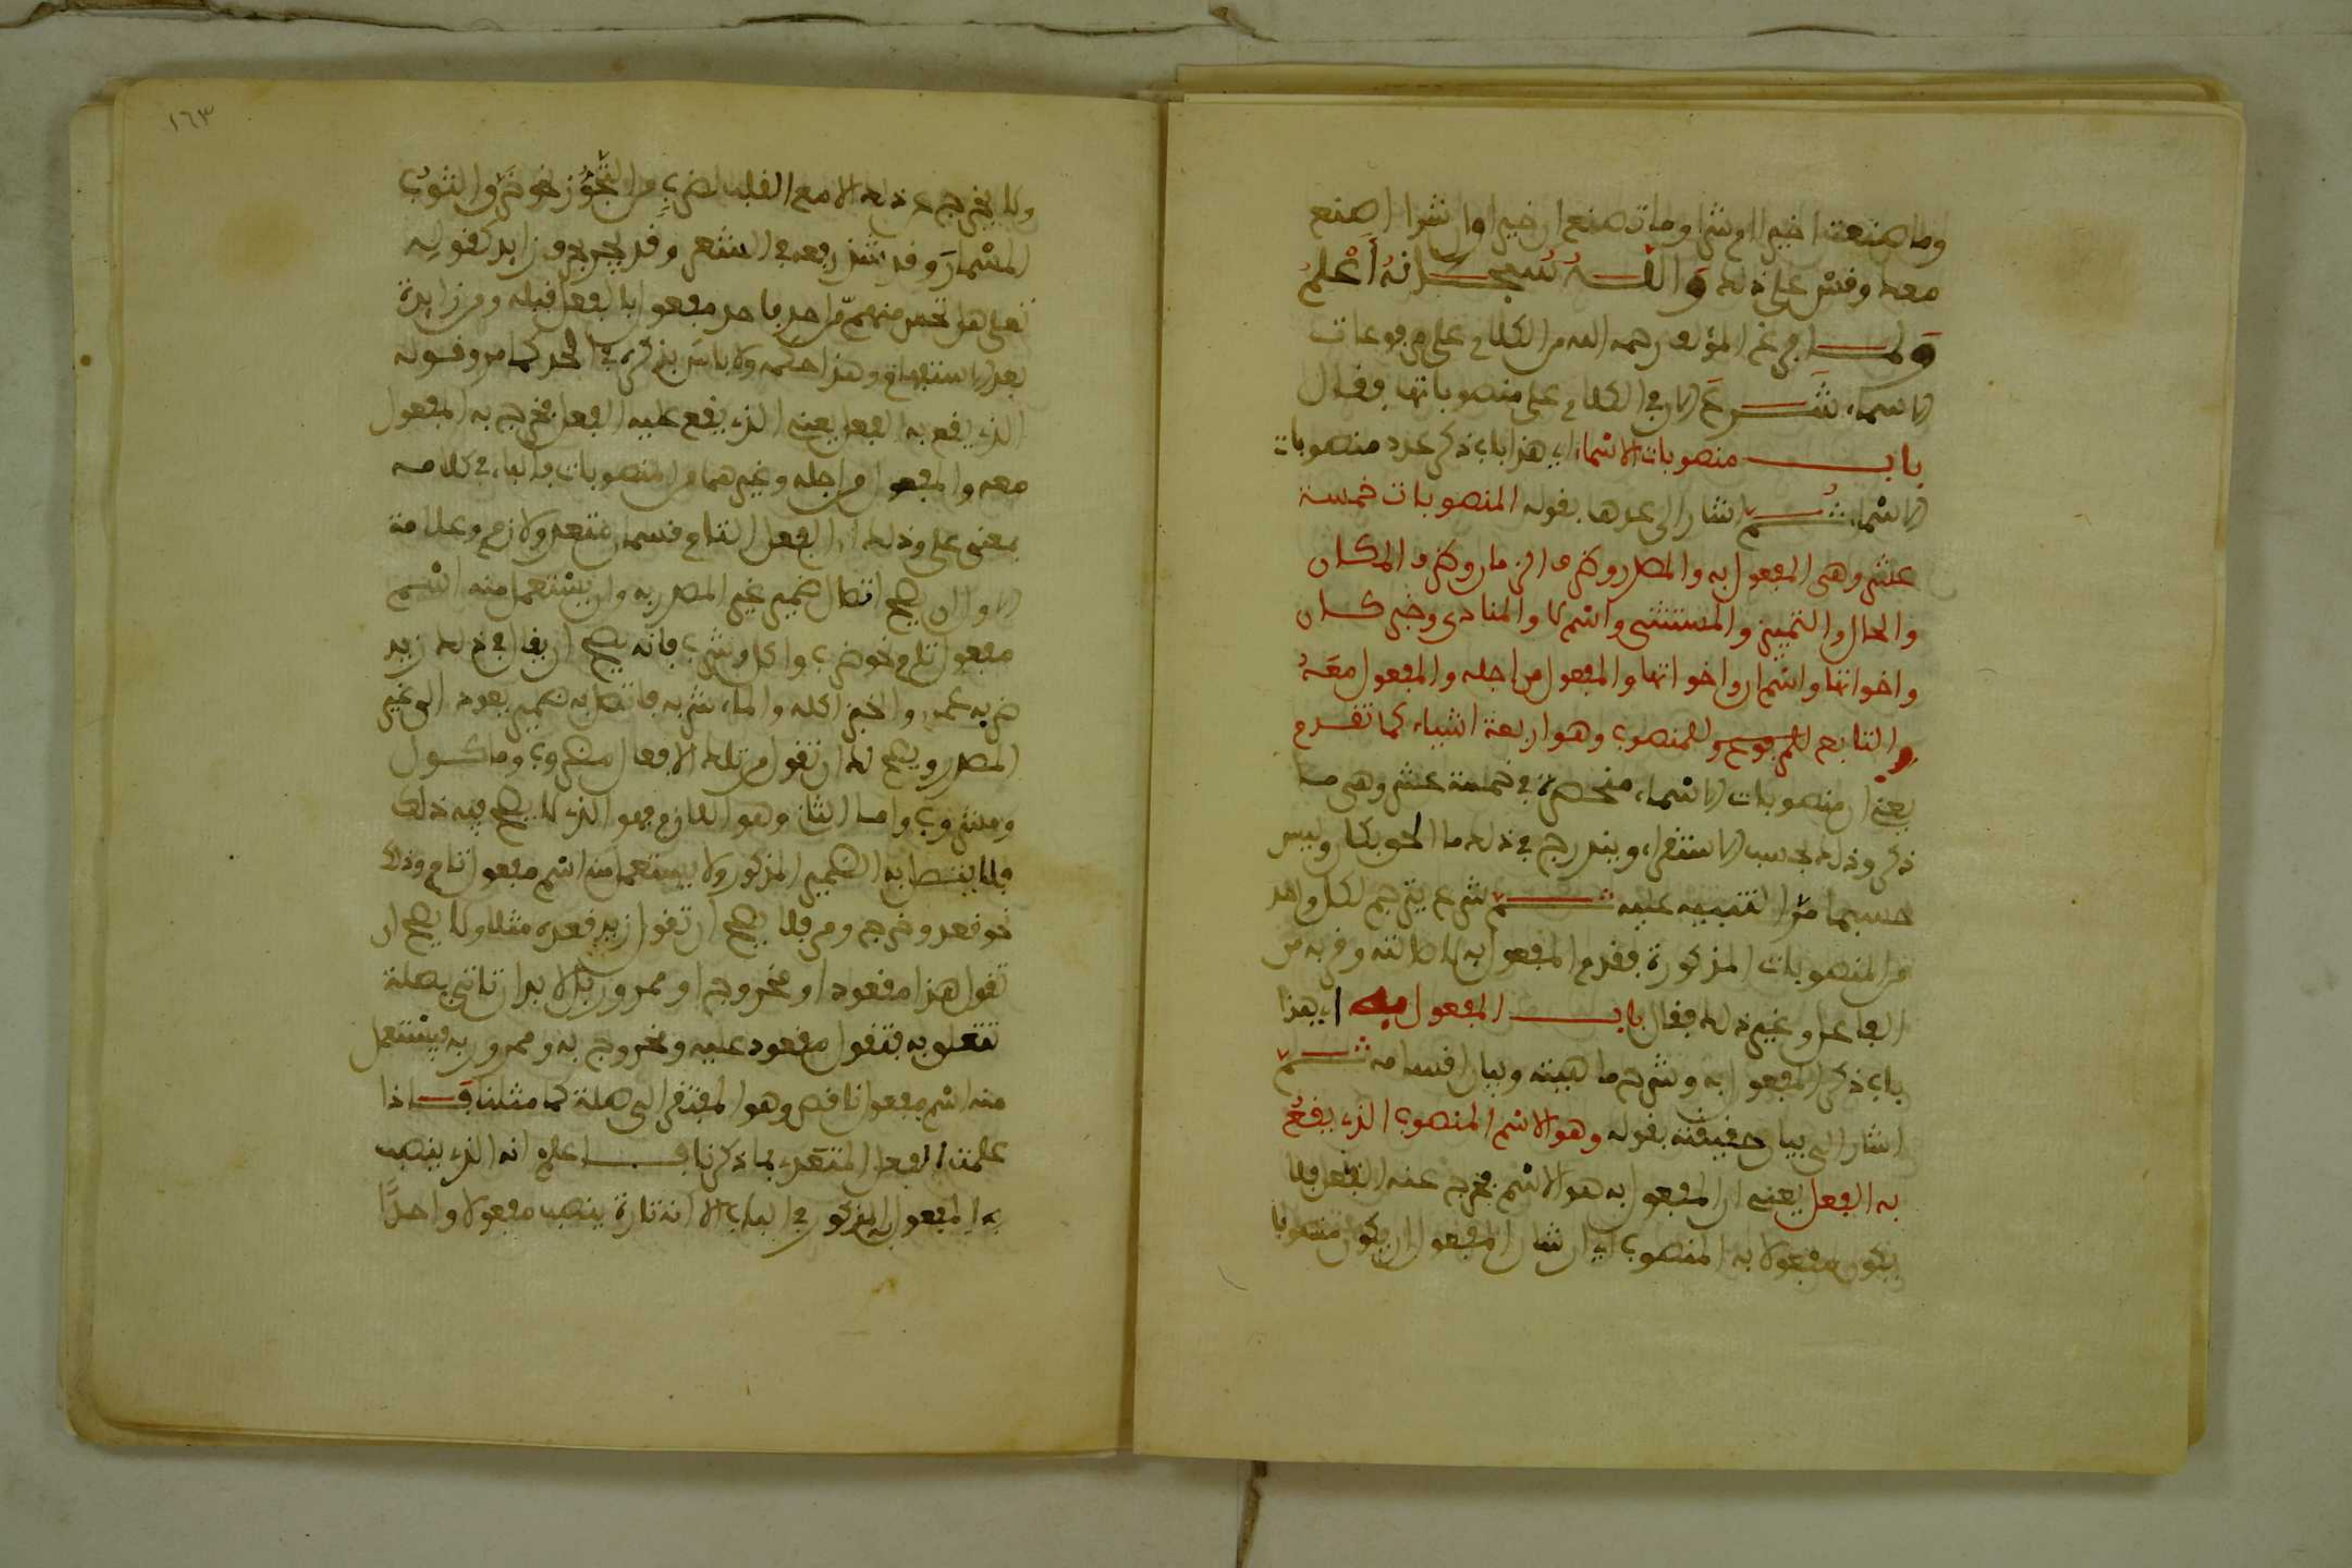 وما صنعت ان خيرا او شرا وما تصنع ان خيرا وان شرا اصنع
معه وقس على ذلك والله سبحانه أعلم
ولما فرغ المؤلف رحمه الله من الكلام على مرفوعات
الاسماء شرع الان في الكلام على منصوباتها فقال
باب منصوبات الاسماء اي هذا باب ذكر عدد منصوبات
الاسماء ثم اشار الى عدها بقوله المنصوبات خمسة
عشر وهي المفعول به والمصدر وظرف الزمان وظرف المكان
والحال والتمييز والمستثنى واسم لا والمنادى وخبر كان
واخواتها واسم ان واخواتها والمفعول من اجله والمفعول معه
والتابع للمرفوع وللمنصوب وهو اربعة اشياء كما تقدم
يعني ان منصوبات الاسماء منحصرة في خمسة عشر وهي ما
ذكر وذلك بحسب الاستقراء ويندرج في ذلك ما الحق بكان وليس
حسبما مر التنبيه عليه ثم شرع يترجم لكل واحد
من المنصوبات المذكورة فقدم المفعول به لاصالته وقربه من
الفاعل وغير ذلك فقال باب المفعول به اي هذا
باب ذكر المفعول به وشرح ماهيته وبيان اقسامه ثم
اشار الى بيان حقيقته بقوله وهو الاسم المنصوب الذي يقع
به الفعل يعني ان المفعول به هو الاسم فخرج عنه الفعل فلا
يكون مفعولا به المنصوب اي ان شان المفعول ان يكون منصوبا
١٦٣
ولا يخرج عن ذلك الا مع القلب لضرب من التجوز نحو خرق الثوب
المسمار وقد شذ رفعه في الشعر وقد يجر بحرف زايد كقوله
تعالى هل تحس منهم من احد فاحد مفعول بالفعل قبله ومن زايدة
بعد الاستفهام وهذا حكمه ولا باس بذكره في الحد كما مر وقوله
الذي يقع به الفعل يعني الذي يقع عليه الفعل فخرج به المفعول
معه والمفعول من اجله وغيرهما من المنصوبات فالباء في كلامه
بمعنى على وذلك ان الفعل التام قسمان متعد ولازم وعلامة
الاول ان يصح اتصال ضمير غير المصدر به وان يستعمل منه اسم
مفعول تام نحو ضرب واكل وشرب فانه يصح ان يقال في ذلك زيد
ضربه عمرو والخبز اكله والماء شربه فاتصل به ضمير يعود الى غير
المصدر ويصح لك ان تقول من تلك الافعال مضروب وماكول
ومشروب واما الثاني وهو اللازم فهو الذي لا يصح فيه ذلك
فلا يتصل به الضمير المذكور ولا يستعمل منه اسم مفعول تام وذلك
نحو قعد وخرج ومر فلا يصح ان تقول زيد قعده مثلا ولا يصح ان
تقول هذا مقعود او مخروج او ممرور بل لا بد ان تاتي بصلة
تتعلق به فتقول مقعود عليه ومخروج به وممرور به فيستعمل
منه اسم مفعول ناقص وهو المفتقر الى صلة كما مثلنا فاذا
علمت الفعل المتعدي بما ذكرنا فاعلم انه الذي ينصب
به المفعول به المذكور في الباب الا انه تارة ينصب مفعولا واحدا